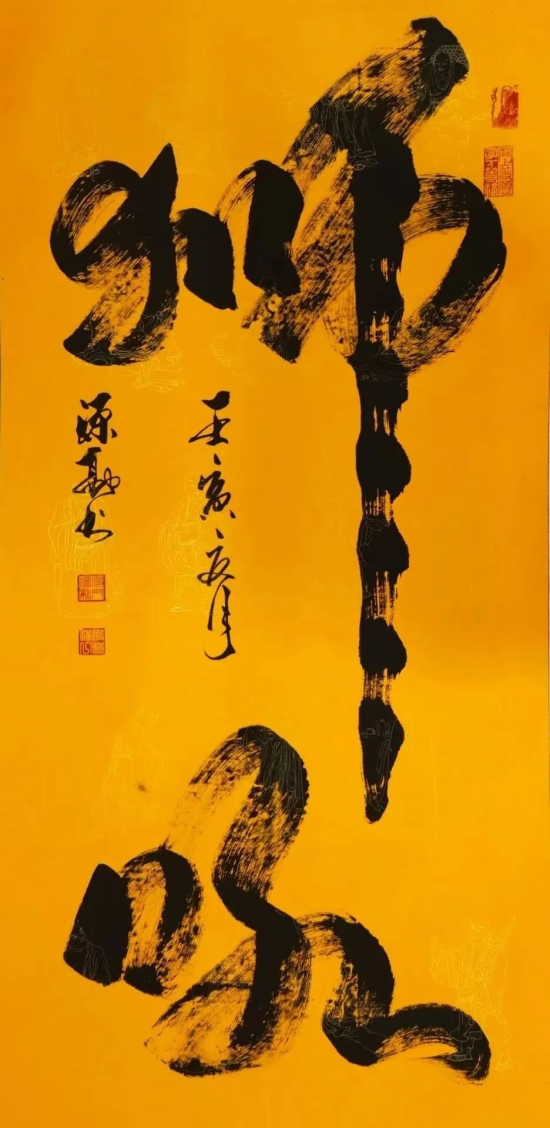 狮吼
壬寅夏月
源勘书